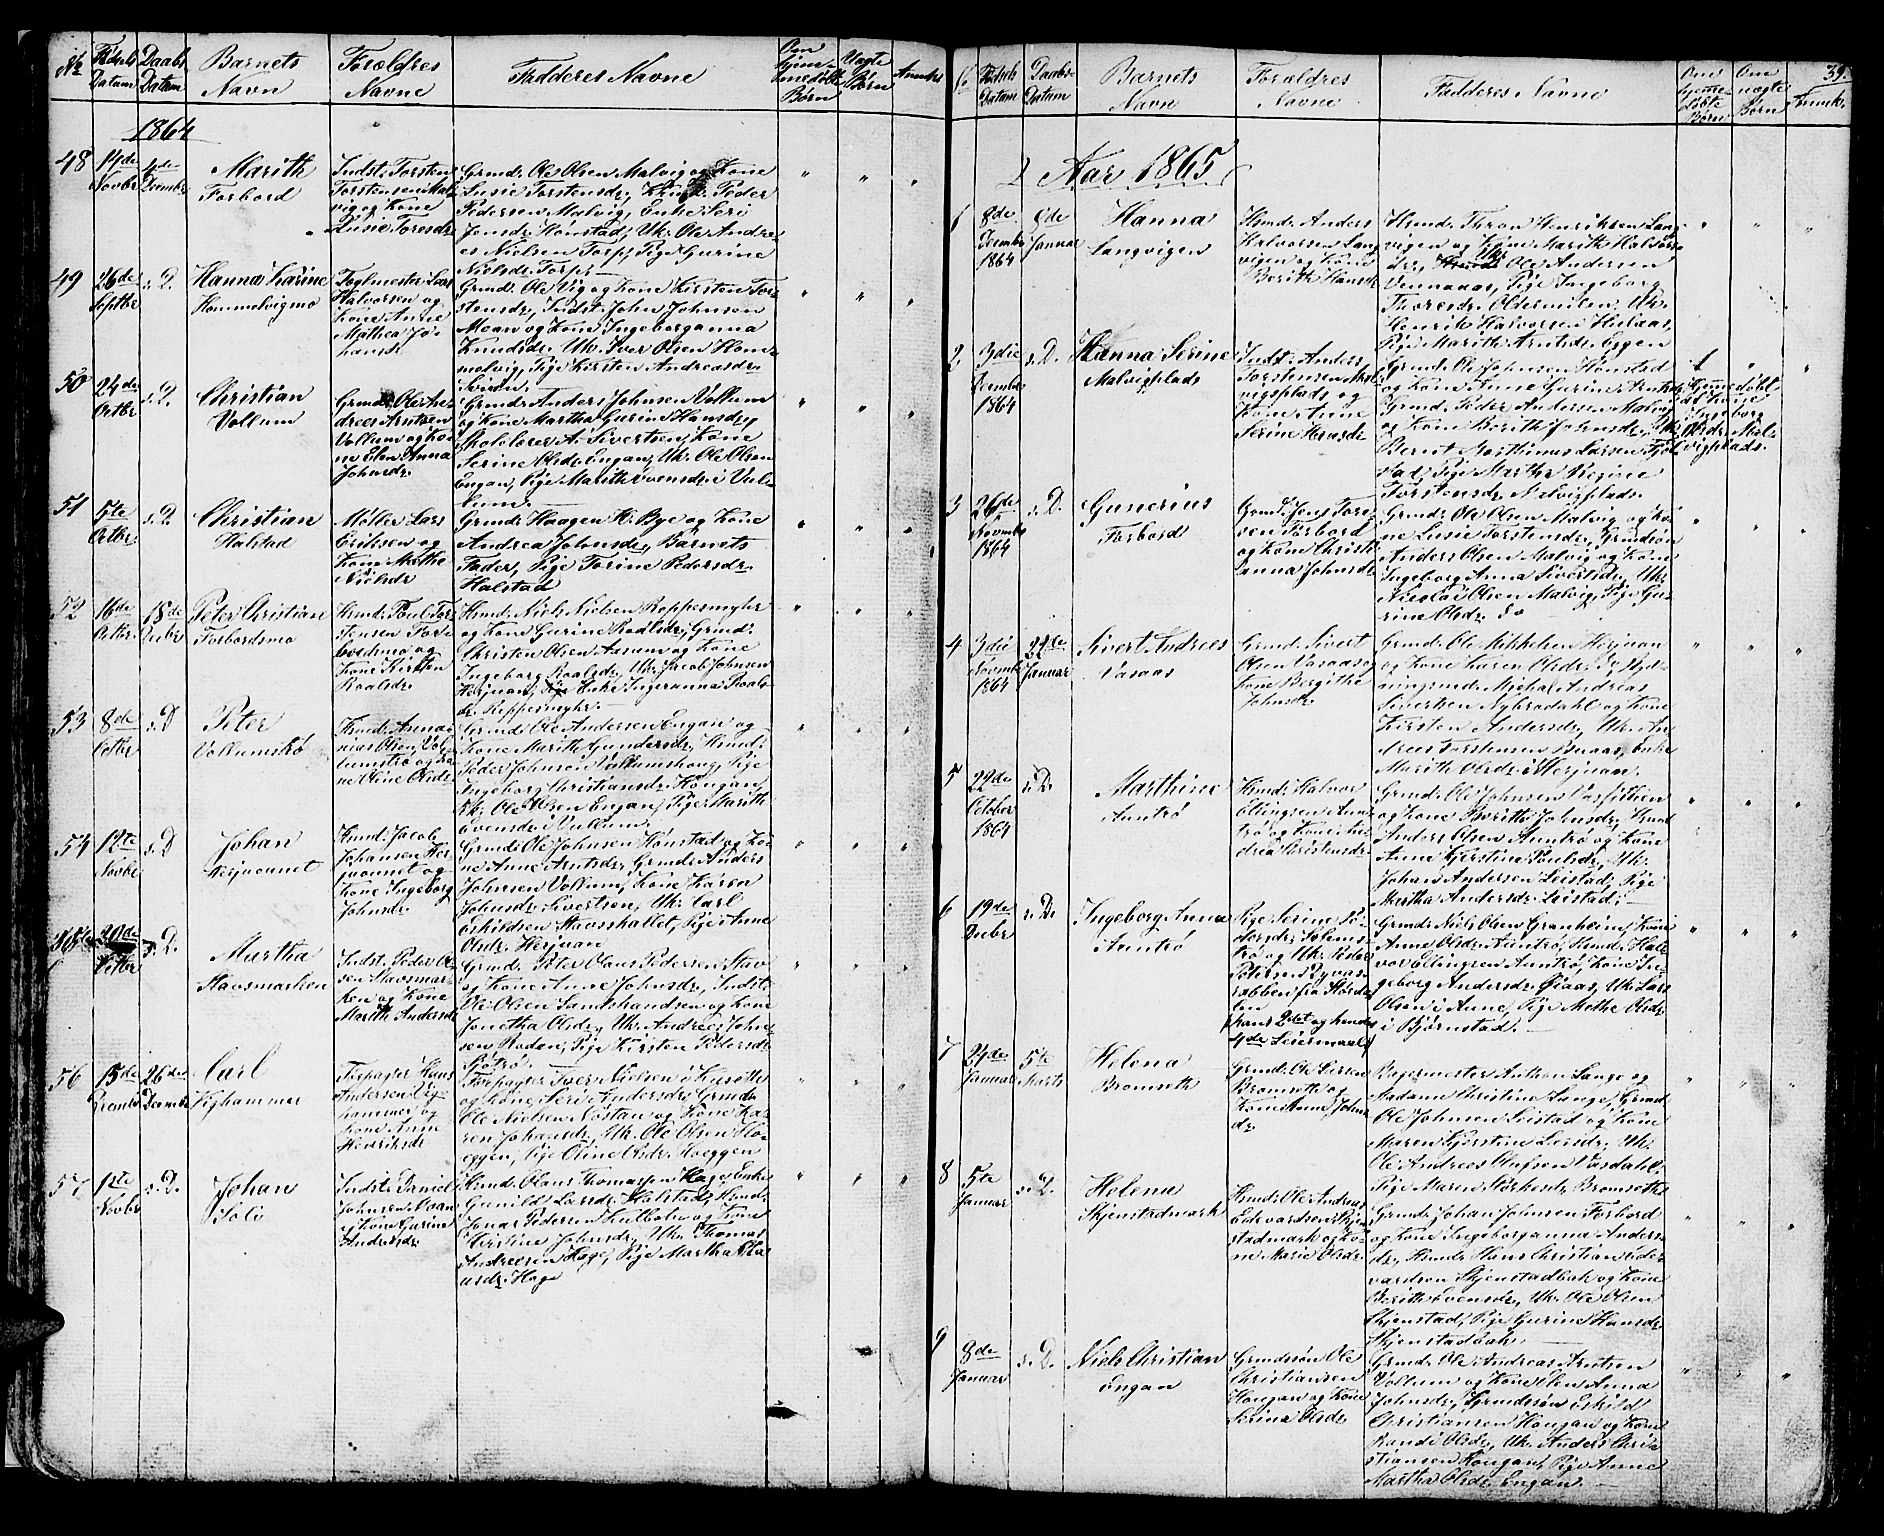 No
Fødsels Datum
Daabs Datum
Barnets Navn
Forældres Navne
Fadderes Navne
Om Hjemmedøbte Børn
Uægte Børn
Anmrk.
1864
48
14de Novbr
4de Decembr
Marith
Forbord
Indst. Torsten
Torstensen Mal-
vig og Kone
Lusie Toresdr.
Grmd. Ole Olsen Malvig og Kone
Lusie Torstensdr.,
Pedersen Malvig, Enke Seri
Jonsdr. Hønstad, Uk. Ole Andre-
es Nielsen Torp, Pige Gurine
Nielsdr. Torp.
49
26de Septbr
s. D.
Hanna Karine
Hommelvigmo
Halvorsen og
Kone Anne
Mathea Jo-
hansdr.
Grmd. Ole Vig og Kone Kirsten Tor-
stensdr., Indst. John Johnsen
Moan og Kone Ingeborganna
Knudsdr., Uk. Iver Olsen Hom-
melvig, Pige Kirsten Andreasdr.
50
24de Octbr
s. D.
Christian
Vollum
Grmd. Ole An-
drees Arntsen
Vollum og Ko-
ne Elen Anna
Johnsdr.
Grmd. Anders Johnsen Vollum
og Kone Martha Gurine Hansdr.,
Skolelærer A. Sivertsen, Kone
Serine Olsdr. Engan, Uk. Ole Olsen
Engan, Pige Marith Evensdr. i Vul-
lum.
51
5te Octbr
s. D.
Christian
Halstad
Møller Lars
Eriksen og
Kone Methe
Nielsdr
Grmd. Haagen H. Bye og Kone
Andrea Johnsdr., Barnets
Fader, Pige Torine Pedersdr.
Halstad
52
16de Octbr
18de Decbr
Peter Christian
Forbordsmo
Hmd. Poul Tor-
Jensen For-
bordsmo og
Kone Kirsten
Roalsdr.
Hmd. Niels Nielsen Reppesmyhr
og Kone Gurine Roalsdr., Grmd.
Christen Olsen Aasum og Kone
Ingeborg Roalsdr., Uk. Jacob Johnsen
Herjuan, Enke Ingeranna Roals-
dr. Reppesmyhr.
53
8de Octbr
s. D
Peter
Vollumstrø
Hmd. Anna-
nias Olsen Vol-
lumstrø og Ko-
ne Oline Olsdr
Grmd. Ole Andersen Engan og
Kone Marith Gundersdr., Hmd.
Peder Johnsen Vollumshoug, Pige
Ingeborg Christiansdr. Hougan,
Uk. Ole Olsen Engan, Pige Marith
Evensdr. i Vullum.
54
12te Novbr
s. D
Johan
Herjuvanet
Hmd. Jacob
Johansen Her-
juvanet og
Kone Ingeborg
Johnsdr.
Grmd. Ole Johnsen Hønstad og Ko-
ne Anne Arntsdr., Grmd. Anders
Johnsen Vollum, Kone Karen
Johnsdr. Sivertsen, Uk. Carl
Eskildsen Stavshallet, Pige Anne
Olsdr. Herjuan
20de Octbr
s. D.
Martha
Stavsmarken
Indst. Peder Ol-
sen Stavsmar-
ken og Kone
Marith Andersdr
Grmd. Peter Olaus Pedersen Stav
og Kone Anne Johnsdr., Indst.
Ole Olsen Sandshaudsen og Kone
Jonetha Olsdr., Uk. Andrees John-
sen Roden, Pige Kirsten Pedersdr.
56
15de Decembr
26de Decembr
Carl
Vighammer
Forpagter Hans
Andersen Vig-
hammer og
Kone Anne
Henriksdr
Forpagter Iver Nielsen i Huseth
og Kone Seri Andersdr., Grmd.
Ole Nielsen Nøstan og Kone Ka-
ren Johansdr., Uk. Ole Olsen Ho-
eggen, Pige Oline Olsdr. Hoeggen
57
1ste Novbr
s. D.
Johan
Solli
Indst. Daniel
Johnsen Moan
og Kone Gurine
Andersdr.
Hmd. Olaus Thomassen Hage, Enke
Gunild Larsdr. Halstad, Hmd.
Jonas Pedersen Kulbotn og Kone
Kirstine Johnsdr., Uk. Thomas
Andreesen Hage, Pige Martha Ola-
usdr. Hage
39.
No
Fødsels Datum
Daabs Datum
Barnets Navn
Forældres Navne
Fadderes Navne
Om hjemmedøbte Børn
Om uægte Børn
Anmrk.
Aar 1865
1
8de Decembr 1864
8de Januar
Hanna
Langvigen
Hmd. Anders
Halvorsen Lang-
vigen og Kone
Berith Hansdr
Hmd. Thron Henriksen Lang-
vigen og Kone Marith Halvors-
dr., Uk. Ole Andersen
Vennaaas, Pige Ingeborg
Thoresdr. Oldermelen, Uk.
Henrik Halvorsen Hulaas,
Pige Marith Arntsdr. Eggen
2
3die Decembr 1864
s. D.
Hanna Serine
Malvigplads
Indst. Anders
Torstensen Mal-
vigplads og
Kone Anne
Serine Hansdr
Grmd. Ole Johnsen Hønstad
og Kone Anne Gurine Arntsdr.,
Grmd. Peder Andersen Malvig
og Kone Berith Johnsdr., Uk.
Bernt Marthinus Larsen Fjøl-
stad, Pige Martha Regine
Torstensdr. Malvigplads.
Hjemmedøbt
af Pige
Ingeborg
Olsdr. Mal-
vigplads.
3
26de Novembr 1864
s. D.
Gunerius
Forbord
Grmd. Jens To-
resen Forbord
og Kone Christi-
anna Johnsdr
Grmd. Ole Olsen Malvig og Ko-
ne Lusie Torstensdr., Grmdsøn
Anders Olsen Malvig og Kone
Ingeborg Anna Sivertsdr., Uk.
Nicolai Olsen Malvig, Pige Gu-
rine Olsdr. Do
4
3die Novembr 1864
22de Januar
Sivert Andrees
Vasaas
Grmd. Sivert
Olsen Vasaas og
Kone Bergithe
Johnsdr.
Grmd. Ole Mikkelsen Herjuan
og Kone Karen Olsdr.
Michal Andreas
Sivertsen Nybrodahl og Kone
Kirsten Andersdr., Uk. An-
drees Torstensen Buaas, Enke
Marith Olsdr. i Herjuan.
5
22de October 1864
s. D.
Marthine
Auntrø
Hmd. Halvor
Ellingsen Aun-
trø og Kone An-
drea Christensdr
Grmd. Ole Johnsen Vasfittien
og Kone Berith Johnsdr., Hmd.
Anders Olsen Auntrø og Kone
Anne Kjerstine Poulsdr., Uk.
Johan Andersen Leistad, Pige
Martha Andersdr. Leistad.
6
19de Decbr
s. D.
Ingeborg Anna
Auntrø
Pige Serine Pe-
dersdr. Solems-
trø og Uk. Peder
Petersen Ryvas-
rabben fra Størda-
len
hans 2det og hendes
4de Leiermaal
Grmd. Niels Olsen Granheim, Kone
Anne Olsdr. Auntrø, Hmd. Hal-
vor Ellingsen Auntrø, Kone In-
geborg Andersdr. Øiaas, Uk. Lars
Olsen i Aune, Pige Methe Olsdr.
i Bjørnstad.
7
24de Januar
5te Marts
Helena
Bromseth
Grmd. Ole Larsen
Bromseth og
Kone Anne Johns-
dr.
Bagermester Anthon Lange og
Madame Christine Lange, Grmd.
Ole Johnsen Leistad og Kone
Maren Kjerstine Larsdr., Uk.
Ole Andrees Olufsen Vasdahl,
Pige Maren Storkesdr. Bromseth
8
5te Januar
s. D.
Helena
Skjenstadmark
Hmd. Ole Andreas
Edevardsen Skjen-
stadmark og Ko-
ne Marie Olsdr.
Grmd. Johan Johnsen Forbord
og Kone Ingeborganna Anders-
dr., Hmd. Hans Christian Ede-
vardsen Skjenstadbak og Kone
Berith Evensdr., Uk. Ole Olsen
Skjenstad, Pige Gurine Hansdr.
Skjenstadbak
9
8de Januar
s. D.
Niels Christian
Engan
Grmdssøn Ole
Christiansen
Hougan og Kone
Serina Olsdr
Grmd. Ole Andreas Arntsen
Vollum og Kone Elen Anna
Johnsdr., Grmdssøn Eskild
Christiansen Hougan og Kone
Randi Olsdr., Uk. Anders Chris-
tiansen Hougan, Pige Anne
Martha Olsdr. Engan.